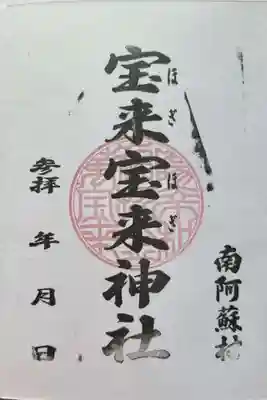 南阿蘇村
宝来宝来神社
ほぎ ほぎ
参拝 年 月 日